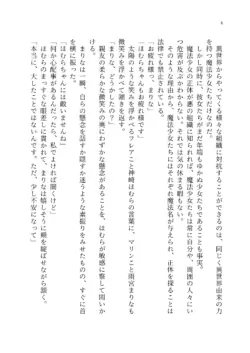 4
異世界からやってくる様々な組織に対抗することができるのは、同じく異世界由来の力
を持つ魔法少女だけ。
だが、それと同時に、彼女たちがまだ年端もゆかぬ少女たちであることも事実。
魔法少女の正体が悪の組織に知られれば、魔法少女たちは常に自分や、周囲の人々にい
つ危害が及ぶかわからない。それでは気の休まる暇もない。
だからこそ、魔法少女たちにはそれぞれ魔法名が与えられ、正体を探ることは
法律でも禁止されている。
「お疲れ様っ、まりな」
「お疲れ様」
太陽のような笑みを浮かべるフレアこと神崎ほむらの言葉に、マリンこと雨宮まりなも
微笑みを浮かべて頷きを返す。
親友のそんな微笑みの奥にわずかな懸念があることを、ほむらは敏感に察して問いか
ける。
まりなは一瞬、自らの懸念を話すか隠すか迷うような素振りをみせたものの、すぐに首
を横に振った。
「ほむらちゃんには敵いませんね」
「何か心配事があるんだったら、私でよければ聞くけど」
ほむらのまっすぐな眼差しに見据えられて、まりなは嬉しそうに頬を綻ばせてから、
「本当に、大したことではないんです。ただ、少し不安になって」